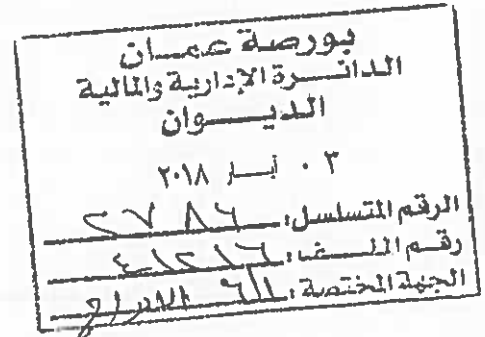 بورصة عمان
الدائرة الإدارية والمالية
الديوان
٠٣ أيار ٢٠١٨
الرقم المتسلسل: ٢٧٨٦
رقم الملف: ٤١٢١٦
الجهة المختصة: